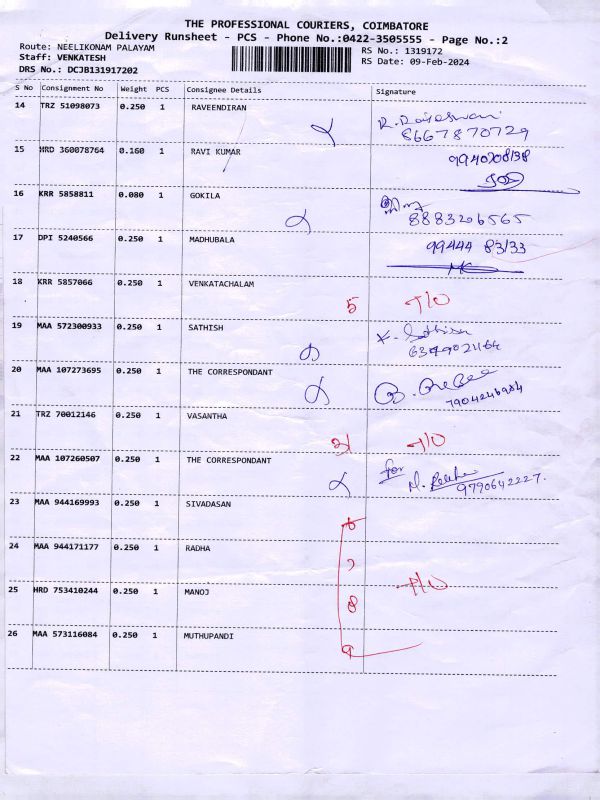 THE PROFESSIONAL COURIERS, COIMBATORE
Delivery Runsheet - PCS - Phone No.:0422-3505555 - Page No.:2
Route: NEELIKONAM PALAYAM RS No.: 1319172
Staff: VENKATESH RS Date: 09-Feb-2024
DRS No.: DCJB131917202
S No Consignment No Weight PCS Consignee Details Signature
14 TRZ 51098073 0.250 1 RAVEENDIRAN R. Rajeswari
8667870729
15 HRD 360078764 0.160 1 RAVI KUMAR 9940208138
16 KRR 5858811 0.080 1 GOKILA
8883206565
17 DPI 5240566 0.250 1 MADHUBALA 99444 83133
18 KRR 5857066 0.250 1 VENKATACHALAM
5
19 MAA 572300933 0.250 1 SATHISH K. Sathish
20 MAA 107273695 0.250 1 THE CORRESPONDANT
7904246984
21 TRZ 70012146 0.250 1 VASANTHA
22 MAA 107260507 0.250 1 THE CORRESPONDANT for
9790642227.
23 MAA 944169993 0.250 1 SIVADASAN
24 MAA 944171177 0.250 1 RADHA
25 HRD 753410244 0.250 1 MANOJ
8
26 MAA 573116084 0.250 1 MUTHUPANDI
9